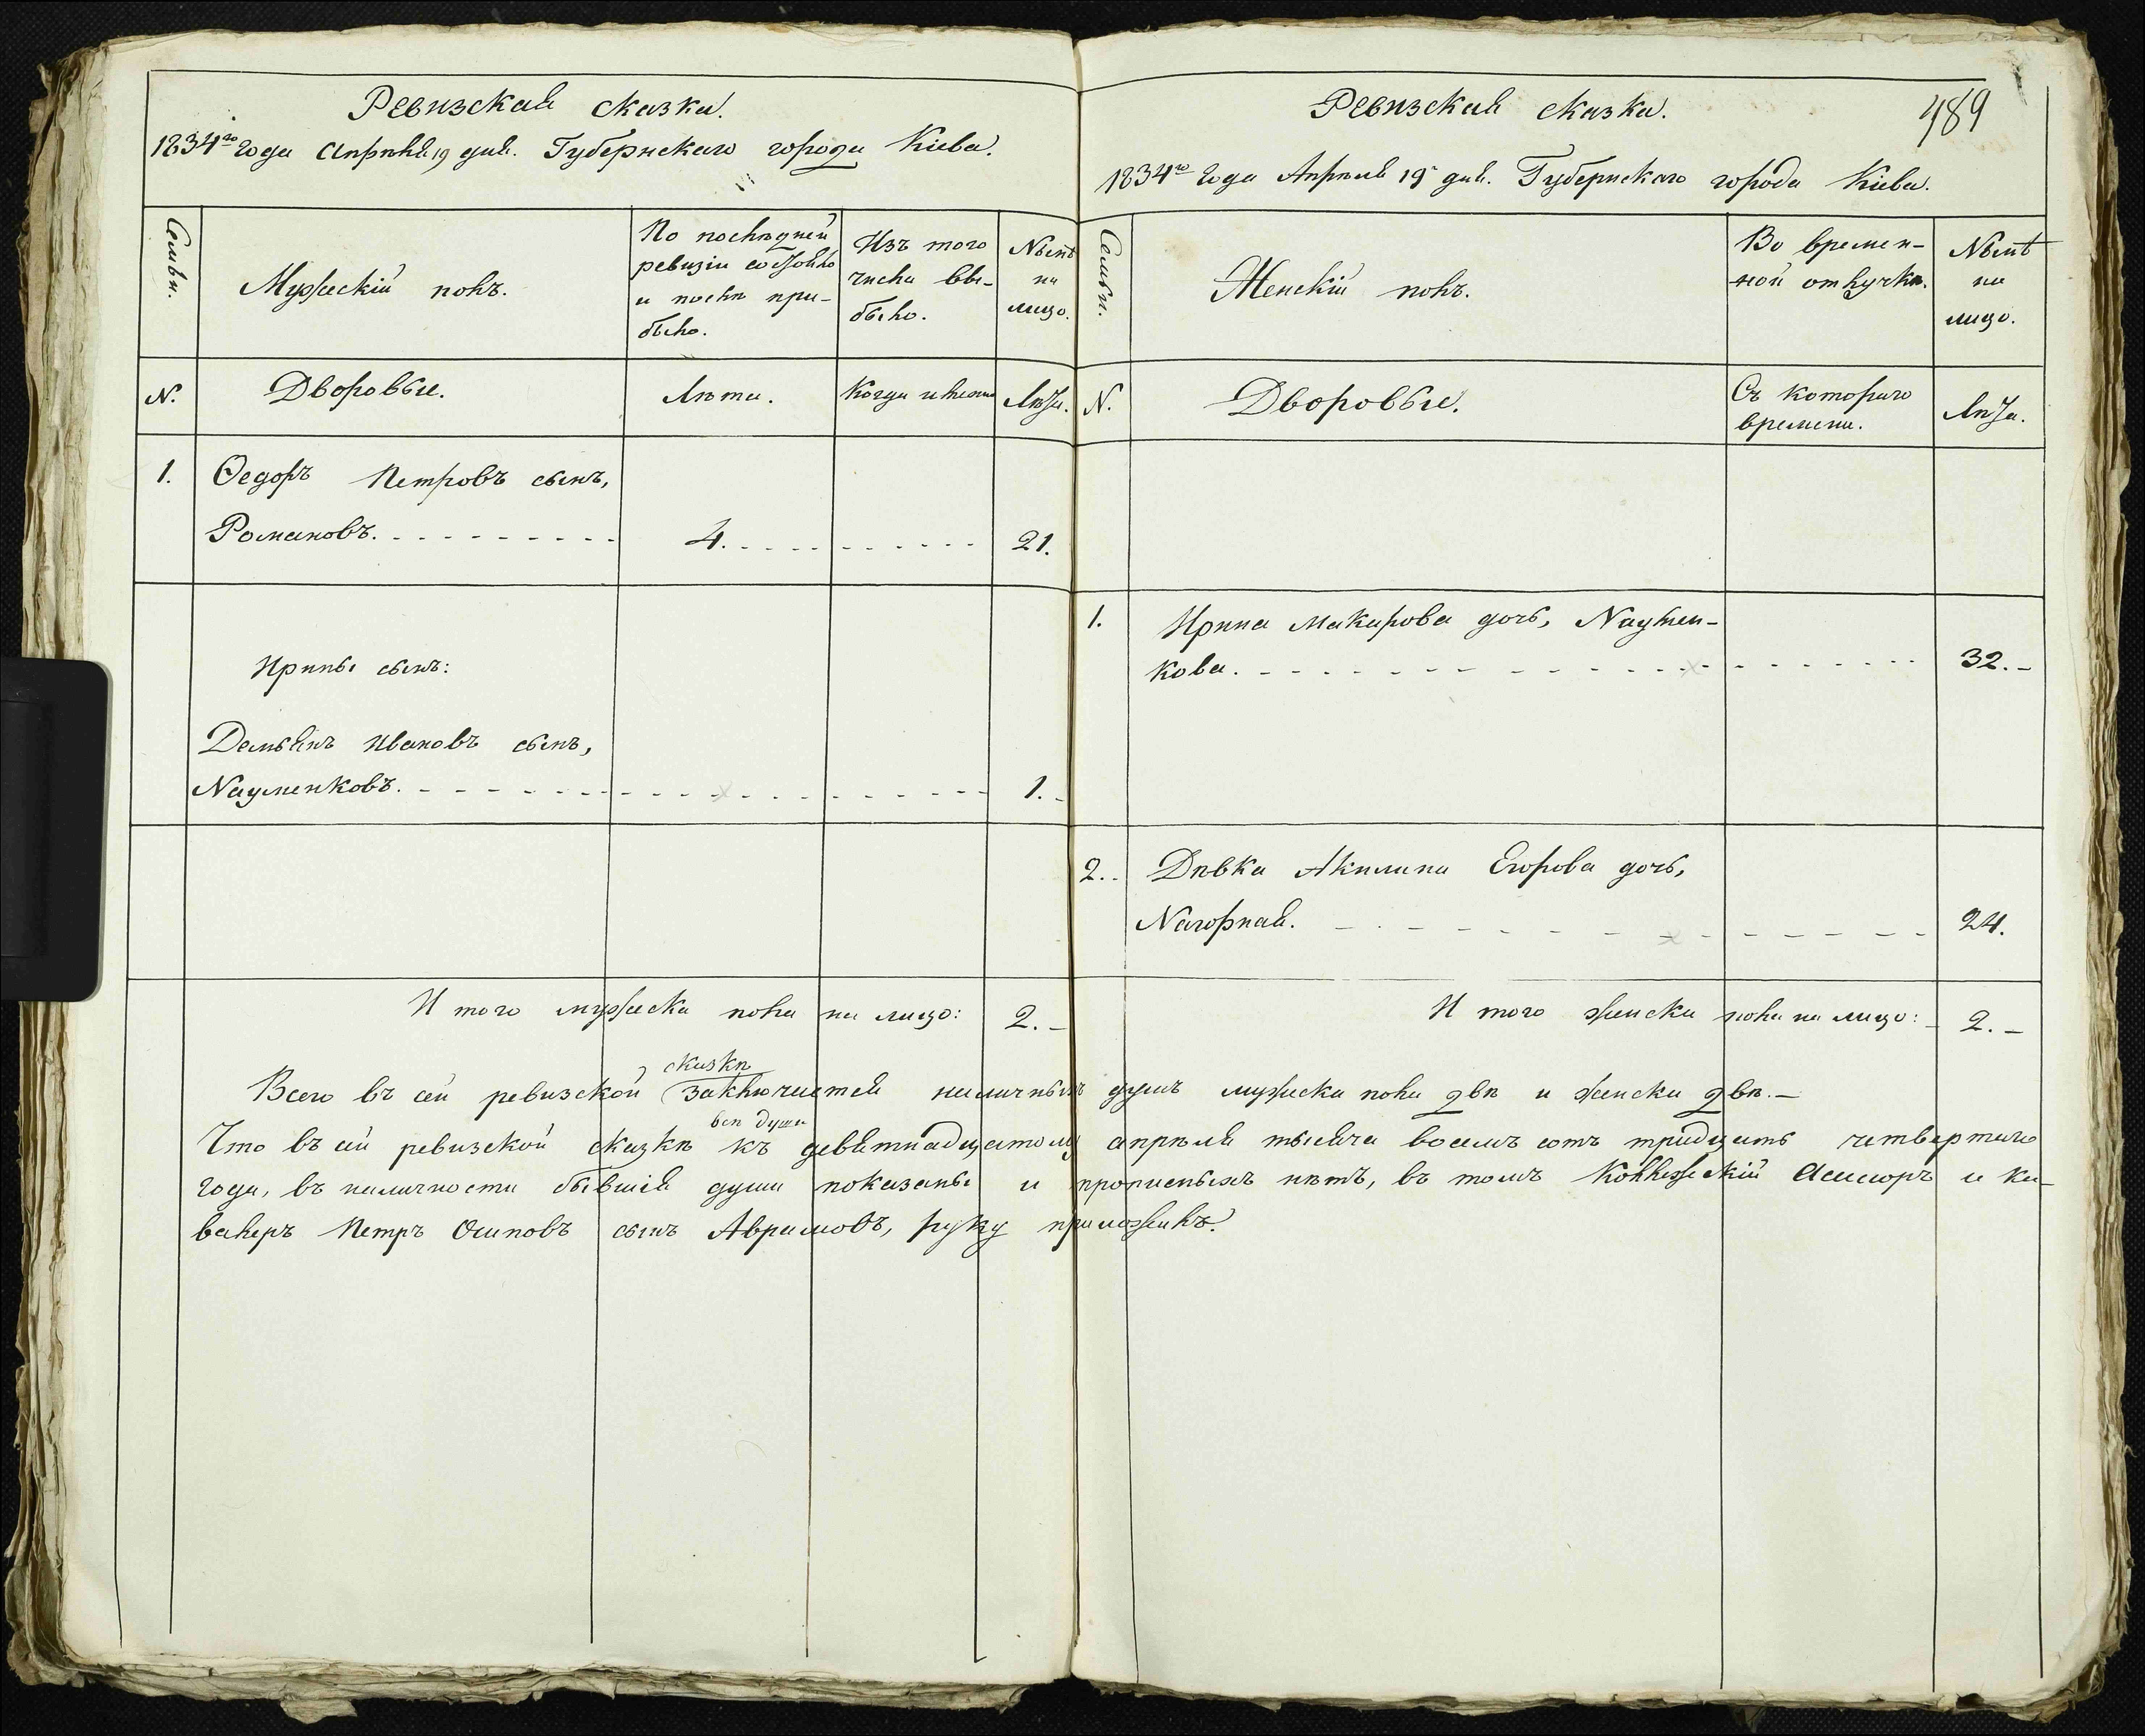 Ревизская сказка.
1834го года Апрѣля 19 дня. Губернскаго города Кіева.
Семьи.
Мужескій полъ.
По послѣдней
ревизіи состояло
и послѣ при-
было.
Изъ того
числа вы-
было.
Нынѣ
на
лицо.
N.
Дворовые.
Лѣта.
Когда именно
Лѣта.
1.
Ѳедоръ Петровъ сынъ,
Романовъ. 4. 21.
Ирины сынъ:
Демьянъ Ивановъ сынъ,
Науменковъ. 1.
И того мужеска пола на лицо: 2.
Ревизская сказка.
489
1834го года Апрѣля 19 дня. Губернскаго города Кіева.
Семьи.
Женскій полъ.
Во времен-
ной отлучкѣ.
Нынѣ
на
лицо.
N.
Дворовые.
Съ котораго
времени.
Лѣта.
1. Ирина Макарова дочь, Наумен-
кова. 32.
2. Дѣвка Акилина Егорова дочь,
Нагорная. 24.
И того женска пола на лицо: 2.
сказкѣ
Всего въ сей ревизской заключается наличныхъ душъ мужеска пола двѣ и женска двѣ.
всѣ души
Что въ сей ревизской сказкѣ къ девятнадцатому апрѣля тысяча восемь сотъ тридцать четвертаго
года, въ наличности бывшія души показаны и прописныхъ нѣтъ, въ томъ Коллежскій Асессоръ и ка-
валеръ Петръ Осиповъ сынъ Аврамовъ, руку приложилъ.